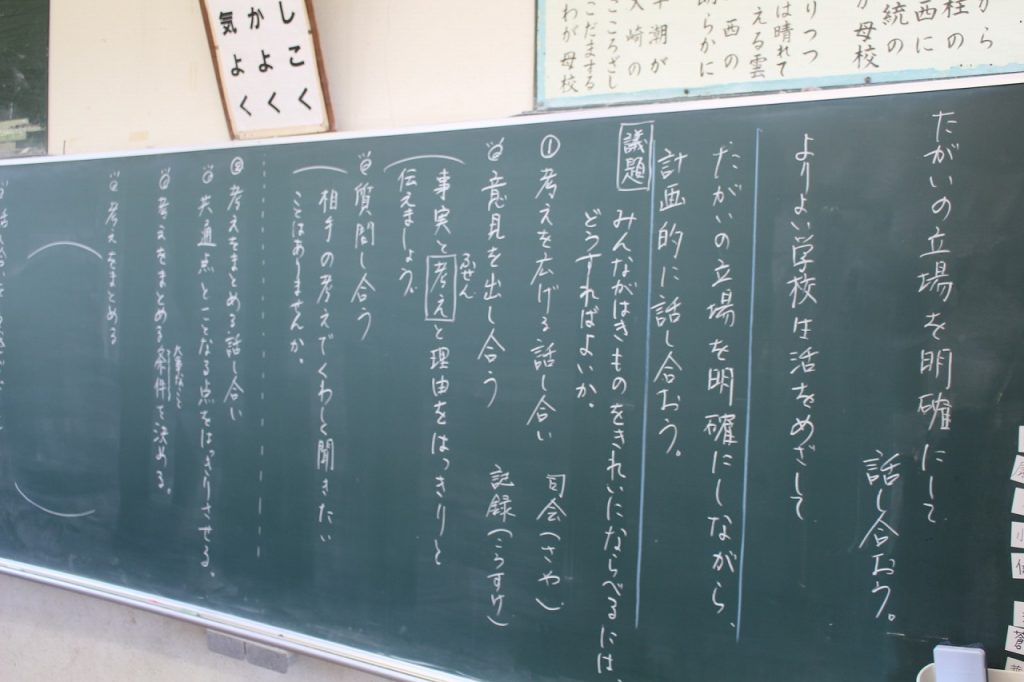 たがいの立場を明確にして
話し合おう。
よりよい学校生活をめざして
たがいの立場を明確にしながら、
計画的に話し合おう。
議題
みんながはきものをきれいにならべるには、
どうすればよいか。
① 考えを広げる話し合い 司会(さや)
意見を出し合う 記録(こうすけ)
ふせん
事実と考えと理由をはっきりと
伝えましょう。
質問し合う
相手の考えでくわしく聞きたい
ことはありませんか。
② 考えをまとめる話し合い
共通点とことなる点をはっきりさせる。
大事なこと
考えをまとめる条件を決める。
考えをまとめる
しこく
かよく
気よく
から
桂の
西に
統の
母校
りつつ
は晴れて
える雲
西の
らかに
潮が
崎の
こころざし
こだまする
わが母校